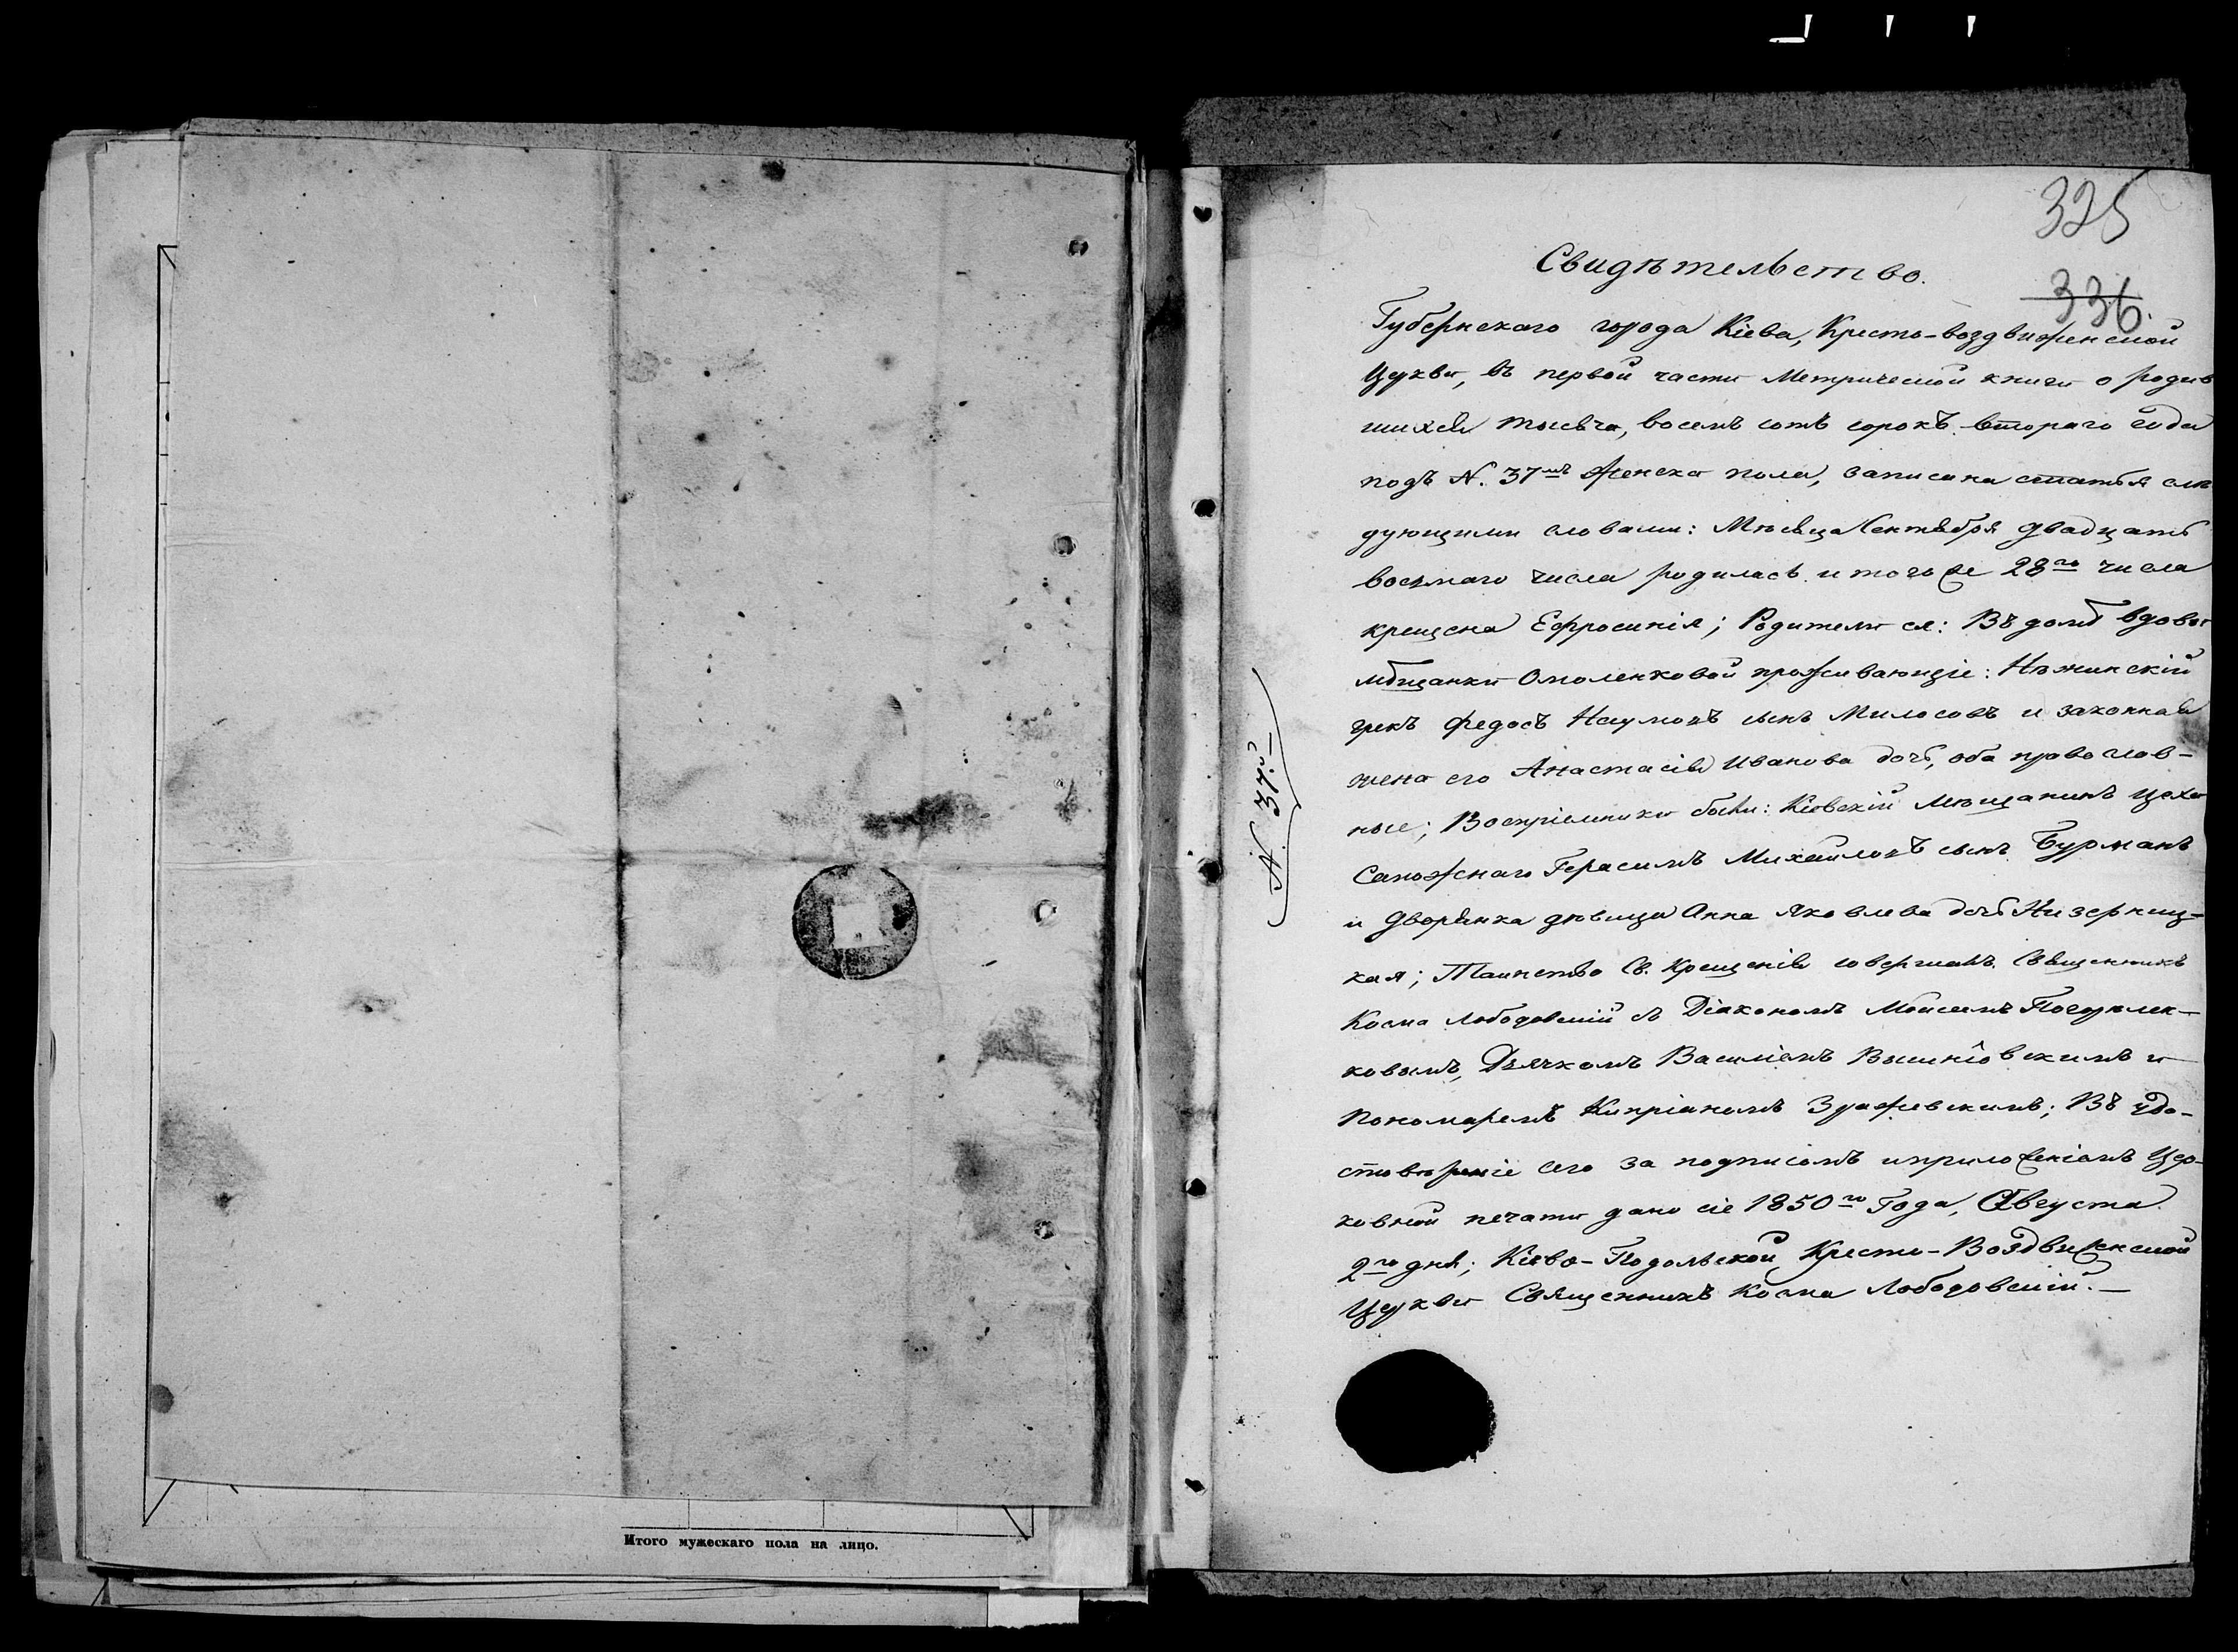 Итого мужескаго пола на лицо.
325
336
Свидѣтельство.
Губернскаго города Кіева, Кресто-воздвиженской
Церкви, въ первой части Метрической книги о родив
шихся тысяча, восемь сотъ сорокъ втораго года
подъ N. 37мъ женска пола, записана статья слѣ
дующими словами: Мѣсяца Сентября двадцать
восьмаго числа родилась и того же 28го числа
крещена Ефросинія; Родители ея: Въ домѣ вдовы
мѣщанки Омоленковой проживающіе: Нѣжинскій
грекъ Федосъ Наумовъ сынъ Милосовъ и законная
жена его Анастасія Иванова дочь, оба православ-
ные; Воспріемники были: Кіевскій Мѣщанинъ цеха
Сапожнаго Герасимъ Михайловъ сынъ Бурманъ
и Дворянка дѣвица Анна Яковлева дочь Низерниц-
кая; Таинство Св. Крещенія совершалъ Священникъ
Косма Лободовскій съ Діакономъ Моисеемъ
ковымъ, Дьячкомъ Василіемъ и
Пономаремъ Кипріаномъ Зражевскимъ; Въ удо-
стовѣреніе сего за подписомъ и приложеніемъ Цер-
ковной печати дано сіе 1850го Года, Августа
2го дня; Кіево-Подольской, Кресто-Воздвиженской
Церкви Священникъ Косма Лободовскій.—
N. 37й